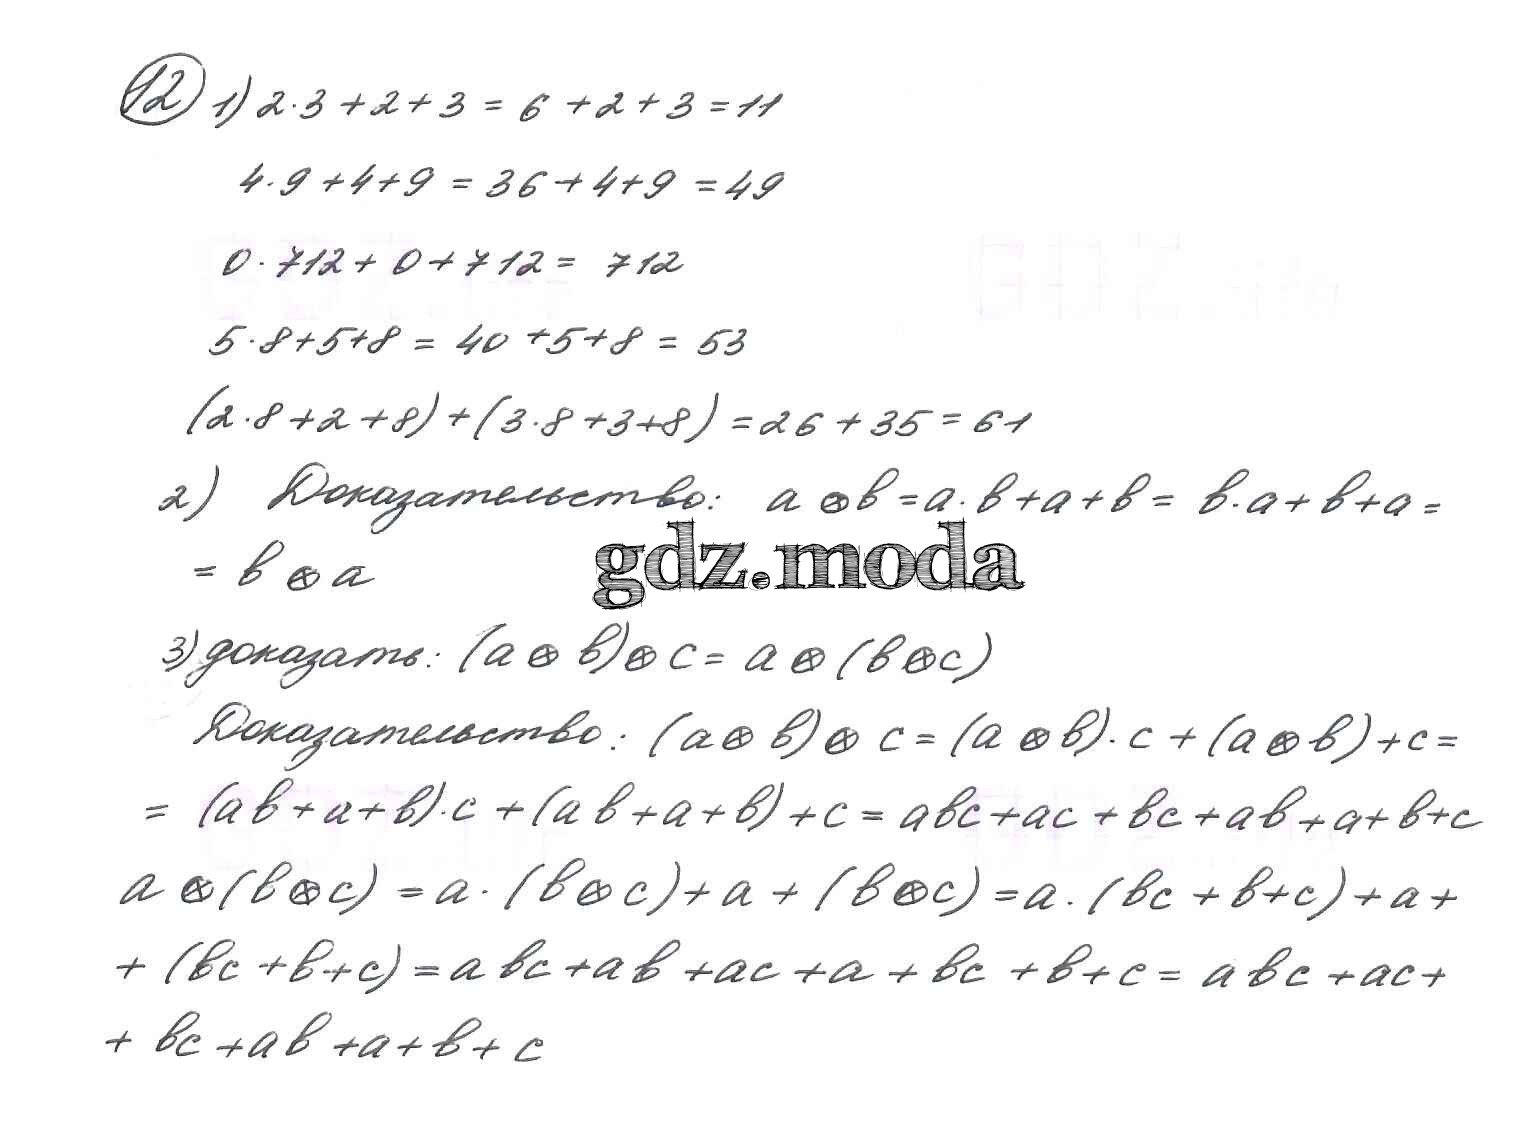 12 1) 2·3+2+3 = 6+2+3 = 11
4·9+4+9 = 36+4+9 = 49
0·712+0+712 = 712
5·8+5+8 = 40+5+8 = 53
(2·8+2+8)+(3·8+3+8) = 26+35 = 61
2) Доказательство: a⊗b = a·b+a+b = b·a+b+a =
= b⊗a
gdz.moda
3) доказать: (a⊗b)⊗c = a⊗(b⊗c)
Доказательство: (a⊗b)⊗c = (a⊗b)·c+(a⊗b)+c =
= (ab+a+b)·c+(ab+a+b)+c = abc+ac+bc+ab+a+b+c
a⊗(b⊗c) = a·(b⊗c)+a+(b⊗c) = a·(bc+b+c)+a+
+(bc+b+c) = abc+ab+ac+a+bc+b+c = abc+ac+
+bc+ab+a+b+c